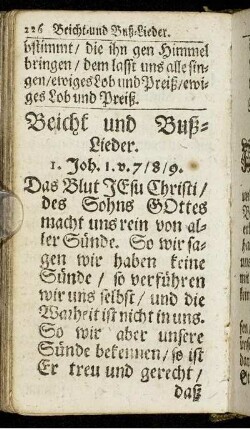 226 Beicht-und Buß-Lieder.
bstimmt / die ihn gen Himmel
bringen / dem lasst uns alle sin-
gen / ewiges Lob und Preiß / ewi-
ges Lob und Preiß.
Beicht und Buß-
Lieder.
1. Joh. 1. v. 7/8/9.
Das Blut JEsu Christi /
des Sohns GOttes
macht uns rein von al-
ler Sünde. So wir sa-
gen wir haben keine
Sünde / so verführen
wir uns selbst / und die
Warheit ist nicht in uns.
So wir aber unsere
Sünde bekennen / so ist
Er treu und gerecht /
daß